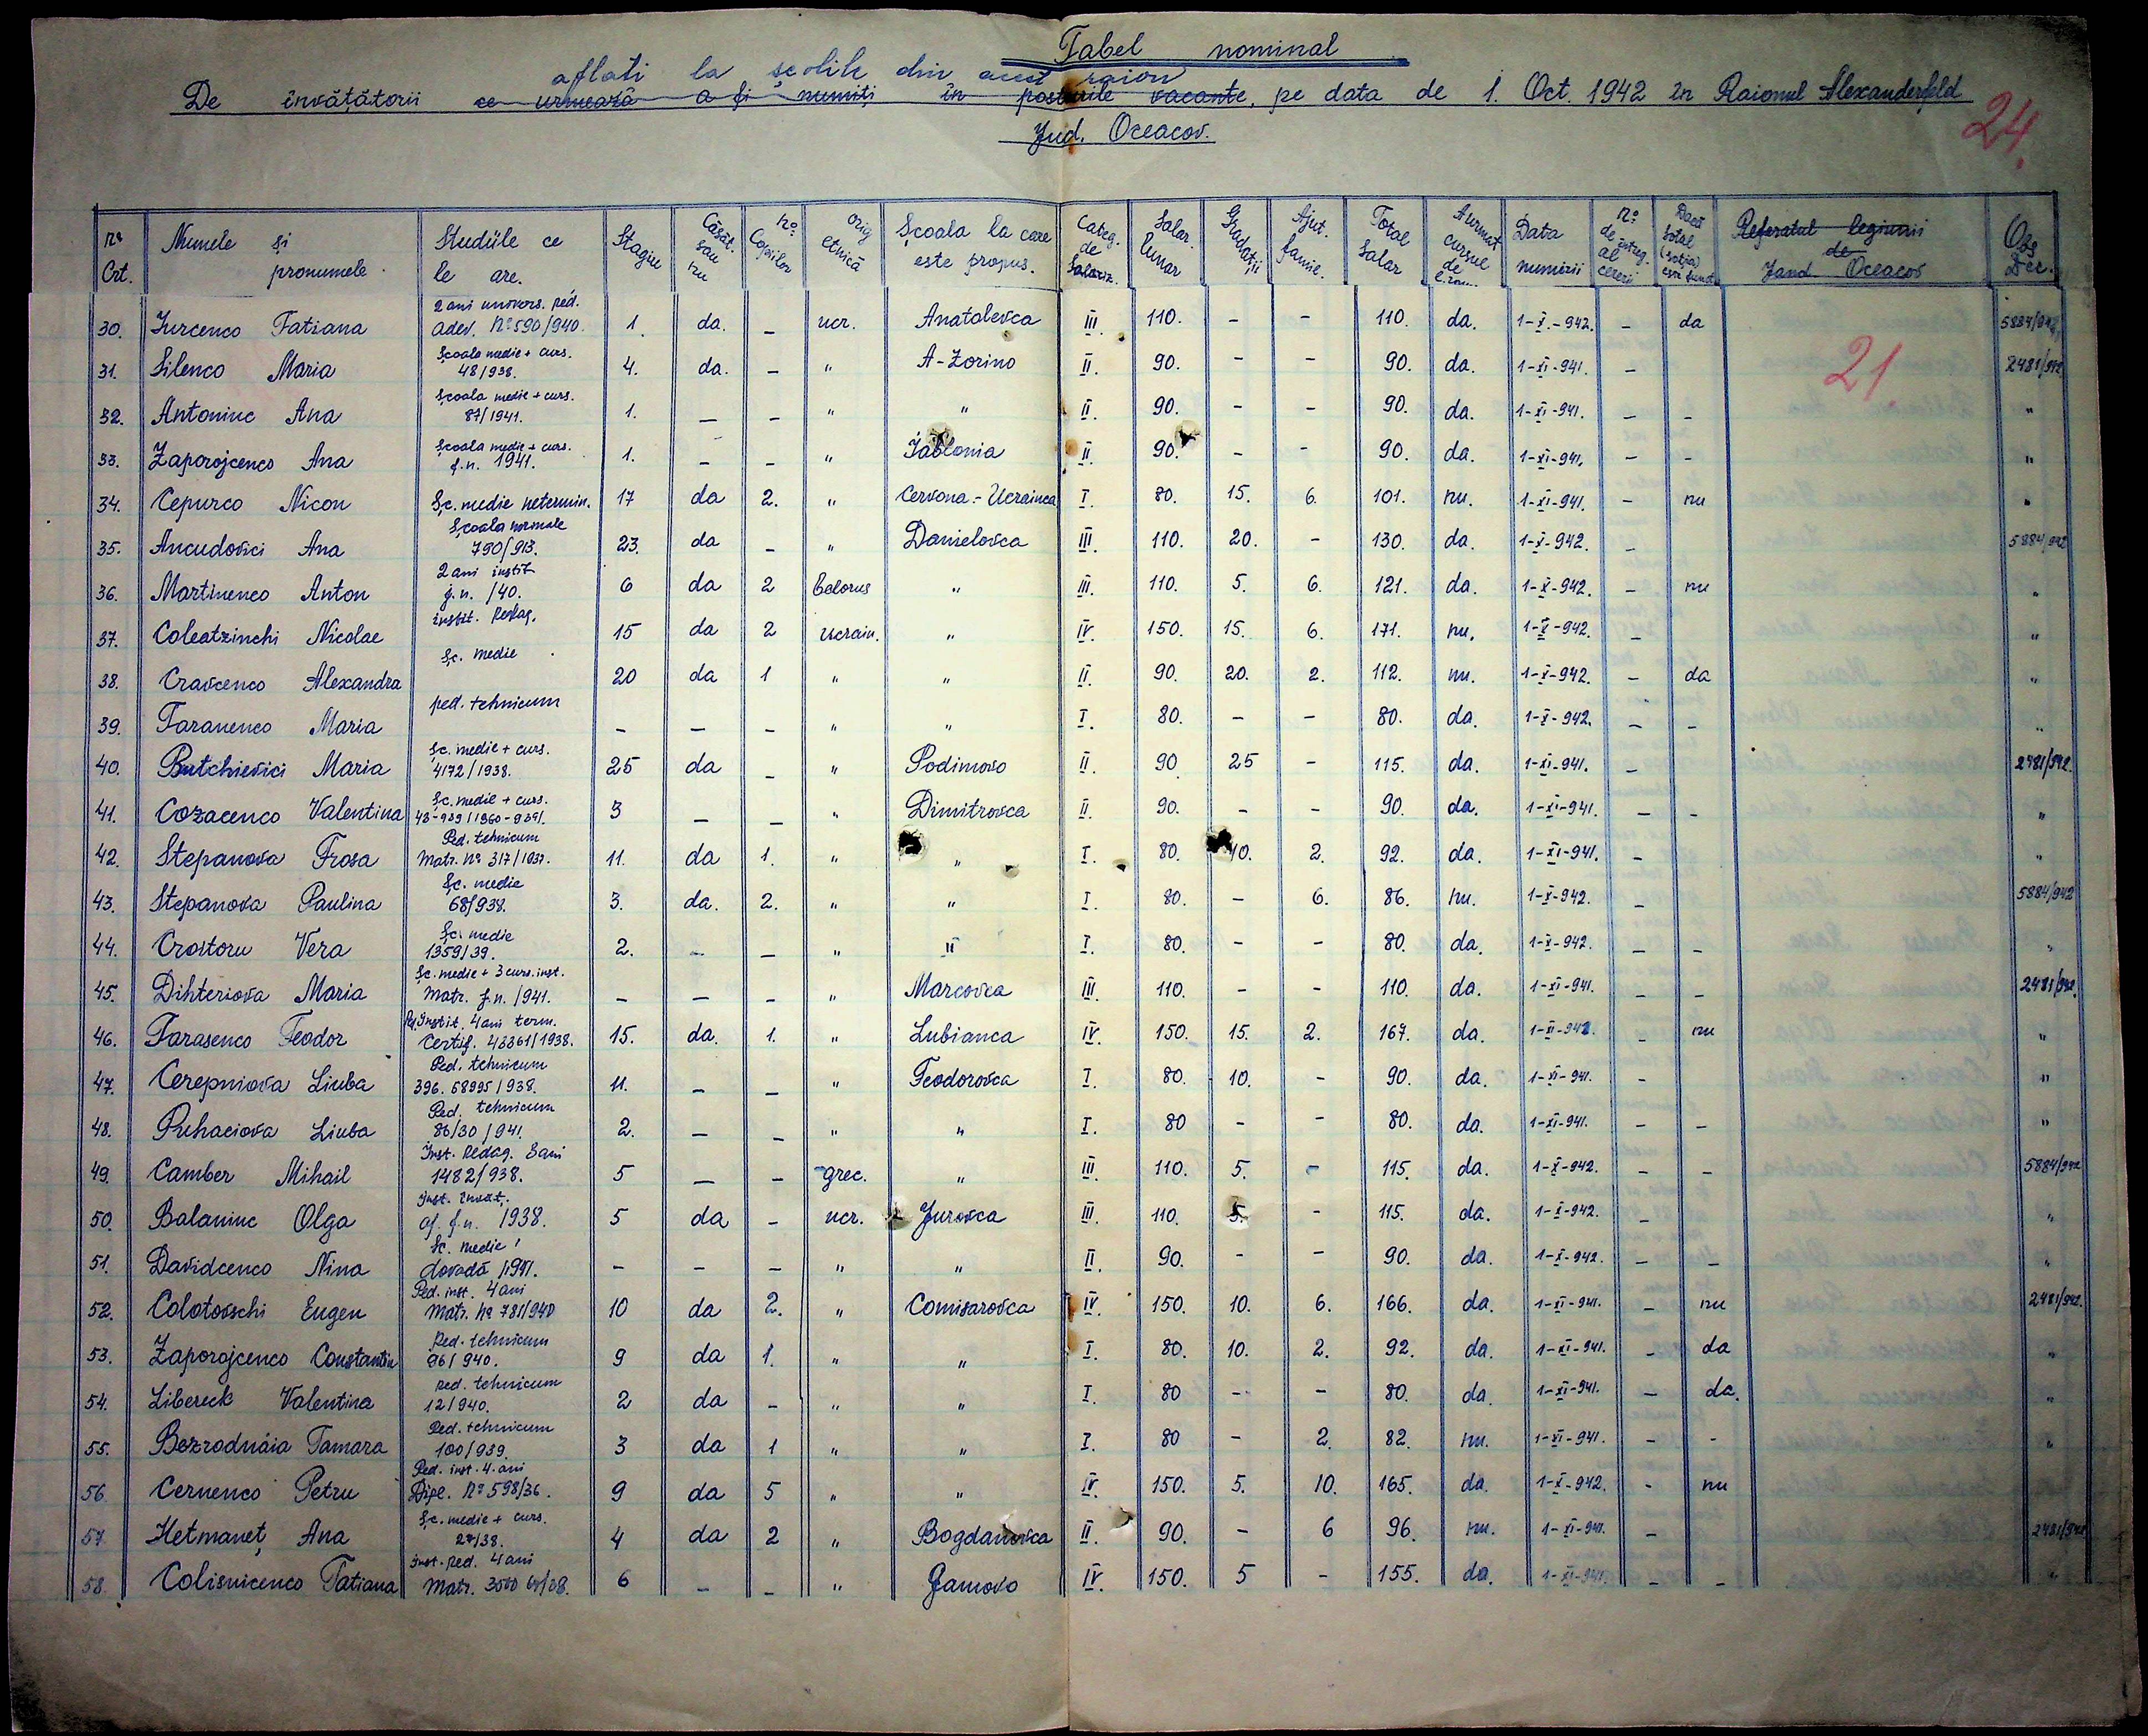 Tabel nominal
aflati la școlile din acest raion
De învățătorii ce urmează a fi numiți în posturile vacante, pe data de 1. Oct. 1942 în Raionul Alexanderfeld
Jud. Oceacov.
24.
No Crt. Numele și pronumele. Studiile ce le are. Stagiu Căsăt. sau nu No. Copiilor Orig etnică Școala la care este propus. Categ. de Salariz. Salar. lunar Gradații Ajut. famil. Total Salar A urmat cursul de l. rom. Data numirii No. de înreg. al cererii Dacă soțul (soția) este funct. Referatul legiunii de Jand Oceacov Obs Dec.
21
30. Iurcenco Tatiana 2 ani univers. ped. Adev. No 590/940. 1. da. - ucr. Anatolevca III. 110. - - 110. da. 1-X-942. - da 5884/942
31. Silenco Maria Școala medie + curs. 48/938. 4. da. - " A-Zorino II. 90. - - 90. da. 1-XI-941. - 2481/942
32. Antoniuc Ana Școala medie + curs. 87/1941. 1. - - " " II. 90. - - 90. da. 1-XI-941. - - "
33. Zaporojcenco Ana Școala medie + curs. f.n. 1941. 1. - - " Iablonia II 90. - - 90. da. 1-XI-941. - - "
34. Cepurco Nicon Șc. medie netermin. 17 da 2. " Cervona-Ucrainca I. 80. 15. 6. 101. nu. 1-XI-941. - nu "
35. Ancudovici Ana Școala normale 790/913. 23. da - " Danielovca III. 110. 20. - 130. da. 1-X-942. - 5884/942
36. Martinenco Anton 2 ani instit f.n. /40. 6 da 2 belorus " III. 110. 5. 6. 121. da. 1-X-942. - nu "
37. Coleatzinchi Nicolae instit. Pedag. 15 da 2 ucrain. " IV. 150. 15. 6. 171. nu. 1-X-942. - "
38. Cravcenco Alexandra Șc. medie 20 da 1 " " II. 90. 20. 2. 112. nu. 1-X-942. - da "
39. Taranenco Maria ped. tehnicum - - - " " I. 80. - - 80. da. 1-X-942. - - "
40. Butchievici Maria Șc. medie + curs. 4172/1938. 25 da - " Podimovo II. 90 25 - 115. da. 1-XI-941. - 2481/942.
41. Cozacenco Valentina Șc. medie + curs. 3 - - " Dimitrovca II. 90. - - 90. da. 1-XI-941. - - "
42. Stepanova Frosa Ped. tehnicum Matr. No 317/1937. 11. da 1. " " I. 80. 10. 2. 92. da. 1-XI-941. - "
43. Stepanova Paulina Șc. medie 68/938. 3. da. 2. " " I. 80. - 6. 86. nu. 1-X-942. - 5884/942
44. Crostoru Vera Șc. medie 1359/39. 2. - - " " I. 80. - - 80. da. 1-X-942. - - "
45. Dihteriova Maria Șc. medie + 3 curs. inst. Matr. f.n. /941. - - - " Marcovca III. 110. - - 110. da. 1-XI-941. - - 2481/942.
46. Tarasenco Feodor Instit. 4 ani term. Certif. 43361/1938. 15. da. 1. " Lubianca IV. 150. 15. 2. 167. da. - nu "
47. Cerepniova Liuba Ped. tehnicum 396. 68995/938. 11. - - " Feodorovca I. 80. 10. - 90. da. 1-XI-941. - "
48. Puhaciova Liuba Ped. tehnicum 86/30/941. 2. - - " " I. 80 - - 80. da. 1-XI-941. - - "
49. Camber Mihail Inst. Pedag. 3 ani 1482/938. 5 - - grec. " III. 110. 5. - 115. da. 1-X-942. - - 5884/942
50. Balaniuc Olga Inst. învăț. f.n. 1938. 5 da - ucr. Jurovca III. 110. 5. - 115. da. 1-X-942. - "
51. Davidcenco Nina Șc. medie dovadă /1941. - - - " " II. 90. - - 90. da. 1-X-942. - - "
52. Colotovschi Eugen Ped. inst. 4 ani Matr. No 781/940 10 da 2. " Comisarovca IV. 150. 10. 6. 166. da. 1-XI-941. - nu 2481/942.
53. Zaporojcenco Constantin Ped. tehnicum 96/940. 9 da 1. " " I. 80. 10. 2. 92. da. 1-XI-941. - da "
54. Libereck Valentina ped. tehnicum 12/940. 2 da - " " I. 80 - - 80. da. 1-XI-941. - da. "
55. Bezrodnăia Tamara Ped. tehnicum 100/939. 3 da 1 " " I. 80 - 2. 82. nu. 1-XI-941. - - "
56 Cernenco Petru Ped. inst. 4. ani Dipl. No 598/36. 9 da 5 " " IV. 150. 5. 10. 165. da. 1-X-942. - nu
57. Hetmaneț Ana Șc. medie + curs. 27/38. 4 da 2 " Bogdanovca II. 90. - 6 96. nu. 1-XI-941. - 2481/942
58. Colisnicenco Tatiana Inst. ped. 4 ani Matr. 6 - - " Gamovo IV. 150. 5 - 155. da. 1-XI-941. - - "